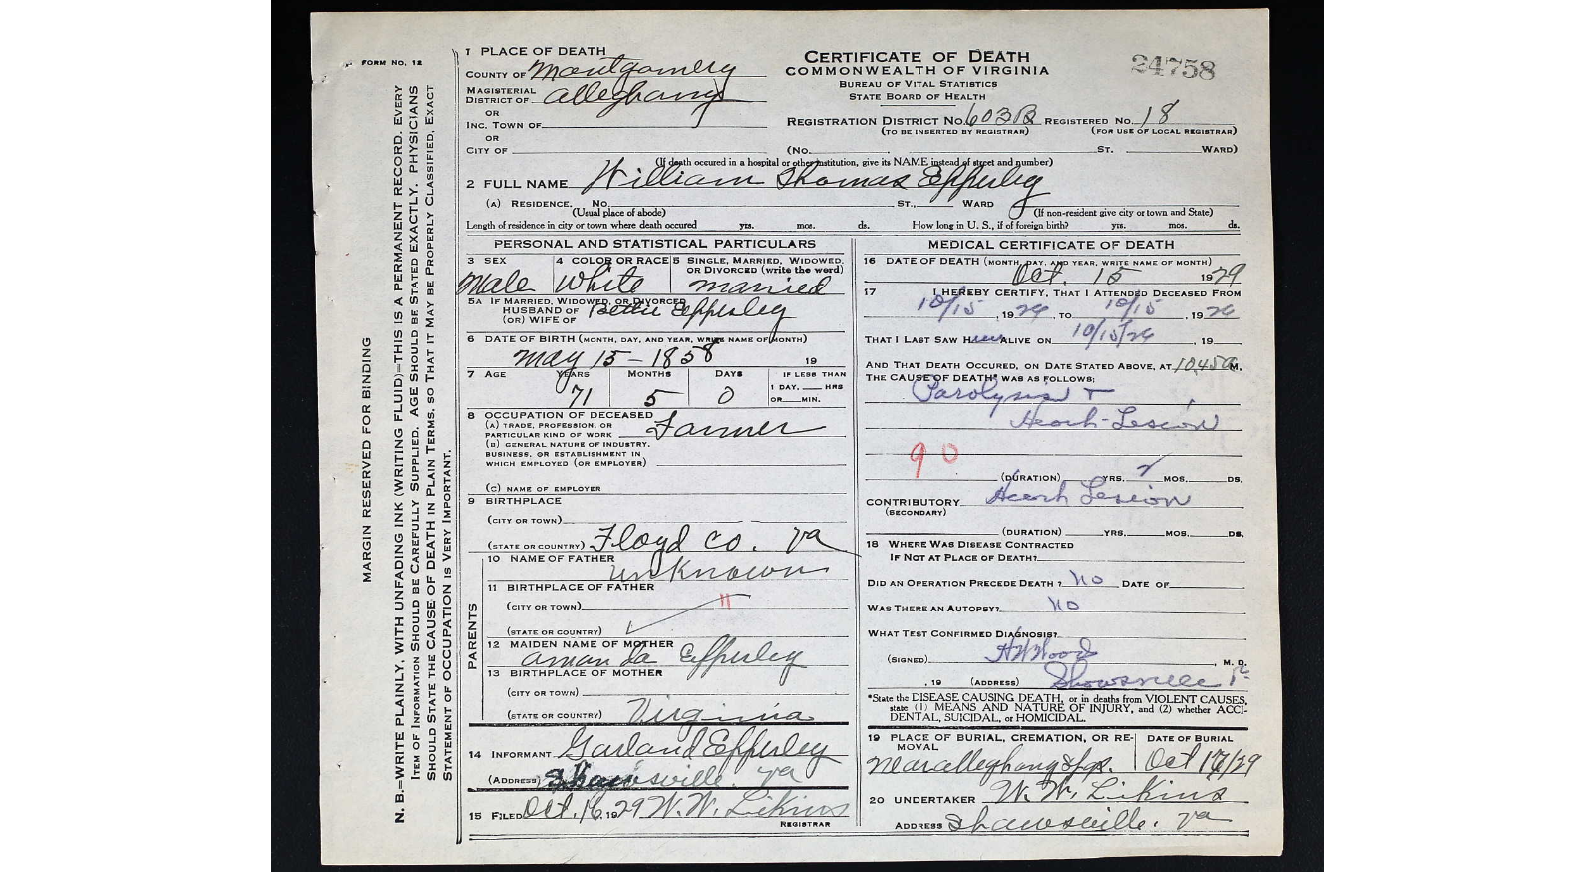 FORM No. 12
MARGIN RESERVED FOR BINDING
N. B.—WRITE PLAINLY, WITH UNFADING INK (WRITING FLUID)—THIS IS A PERMANENT RECORD. EVERY
ITEM OF INFORMATION SHOULD BE CAREFULLY SUPPLIED. AGE SHOULD BE STATED EXACTLY. PHYSICIANS
SHOULD STATE THE CAUSE OF DEATH IN PLAIN TERMS, SO THAT IT MAY BE PROPERLY CLASSIFIED. EXACT
STATEMENT OF OCCUPATION IS VERY IMPORTANT.
CERTIFICATE OF DEATH
COMMONWEALTH OF VIRGINIA
BUREAU OF VITAL STATISTICS
STATE BOARD OF HEALTH
24758
1 PLACE OF DEATH
COUNTY OF Montgomery
MAGISTERIAL DISTRICT OF Alleghany
OR
INC. TOWN OF
OR
CITY OF
REGISTRATION DISTRICT No. 603B REGISTERED No. 18
(TO BE INSERTED BY REGISTRAR) (FOR USE OF LOCAL REGISTRAR)
(No. ST. WARD)
(If death occured in a hospital or other institution, give its NAME instead of street and number)
2 FULL NAME William Thomas Epperley
(A) RESIDENCE. No. ST., WARD
(Usual place of abode) (If non-resident give city or town and State)
Length of residence in city or town where death occured yrs. mos. ds. How long in U. S., if of foreign birth? yrs. mos. ds.
PERSONAL AND STATISTICAL PARTICULARS
3 SEX Male
4 COLOR OR RACE White
5 SINGLE, MARRIED, WIDOWED, OR DIVORCED (write the word) married
5A IF MARRIED, WIDOWED, OR DIVORCED
HUSBAND OF Bettie Epperley
(OR) WIFE OF
6 DATE OF BIRTH (MONTH, DAY, AND YEAR, WRITE NAME OF MONTH)
May 15 - 1858 19
7 AGE YEARS 71 MONTHS 5 DAYS 0 IF LESS THAN 1 DAY, HRS OR MIN.
8 OCCUPATION OF DECEASED
(A) TRADE, PROFESSION, OR PARTICULAR KIND OF WORK Farmer
(B) GENERAL NATURE OF INDUSTRY, BUSINESS, OR ESTABLISHMENT IN WHICH EMPLOYED (OR EMPLOYER)
(C) NAME OF EMPLOYER
9 BIRTHPLACE
(CITY OR TOWN)
(STATE OR COUNTRY) Floyd Co. Va
PARENTS
10 NAME OF FATHER unknown
11 BIRTHPLACE OF FATHER
(CITY OR TOWN) 11
(STATE OR COUNTRY)
12 MAIDEN NAME OF MOTHER Amanda Epperley
13 BIRTHPLACE OF MOTHER
(CITY OR TOWN)
(STATE OR COUNTRY) Virginia
14 INFORMANT Garland Epperley
(ADDRESS) Shawsville, Va
15 FILED Oct. 16, 1929 W. W. Likins
REGISTRAR
MEDICAL CERTIFICATE OF DEATH
16 DATE OF DEATH (MONTH, DAY, AND YEAR, WRITE NAME OF MONTH)
Oct. 15 1929
17 I HEREBY CERTIFY, THAT I ATTENDED DECEASED FROM
10/15, 1929, TO 10/15, 1929
THAT I LAST SAW Him ALIVE ON 10/15/29, 19
AND THAT DEATH OCCURED, ON DATE STATED ABOVE, AT 10.45 a M.
THE CAUSE OF DEATH* WAS AS FOLLOWS:
Paralysis +
Heart-Lesion
90
(DURATION) YRS. MOS. DS.
CONTRIBUTORY Heart Lesion
(SECONDARY)
(DURATION) YRS. MOS. DS.
18 WHERE WAS DISEASE CONTRACTED
IF NOT AT PLACE OF DEATH?
DID AN OPERATION PRECEDE DEATH? No DATE OF
WAS THERE AN AUTOPSY? No
WHAT TEST CONFIRMED DIAGNOSIS?
(SIGNED) Wood, M. D.
, 19 (ADDRESS) Shawsville
*State the DISEASE CAUSING DEATH, or in deaths from VIOLENT CAUSES,
state (1) MEANS AND NATURE OF INJURY, and (2) whether ACCI-
DENTAL, SUICIDAL, or HOMICIDAL.
19 PLACE OF BURIAL, CREMATION, OR REMOVAL DATE OF BURIAL
Near Alleghany Spgs. Oct 17/29
20 UNDERTAKER W. W. Likins
ADDRESS Shawsville, Va